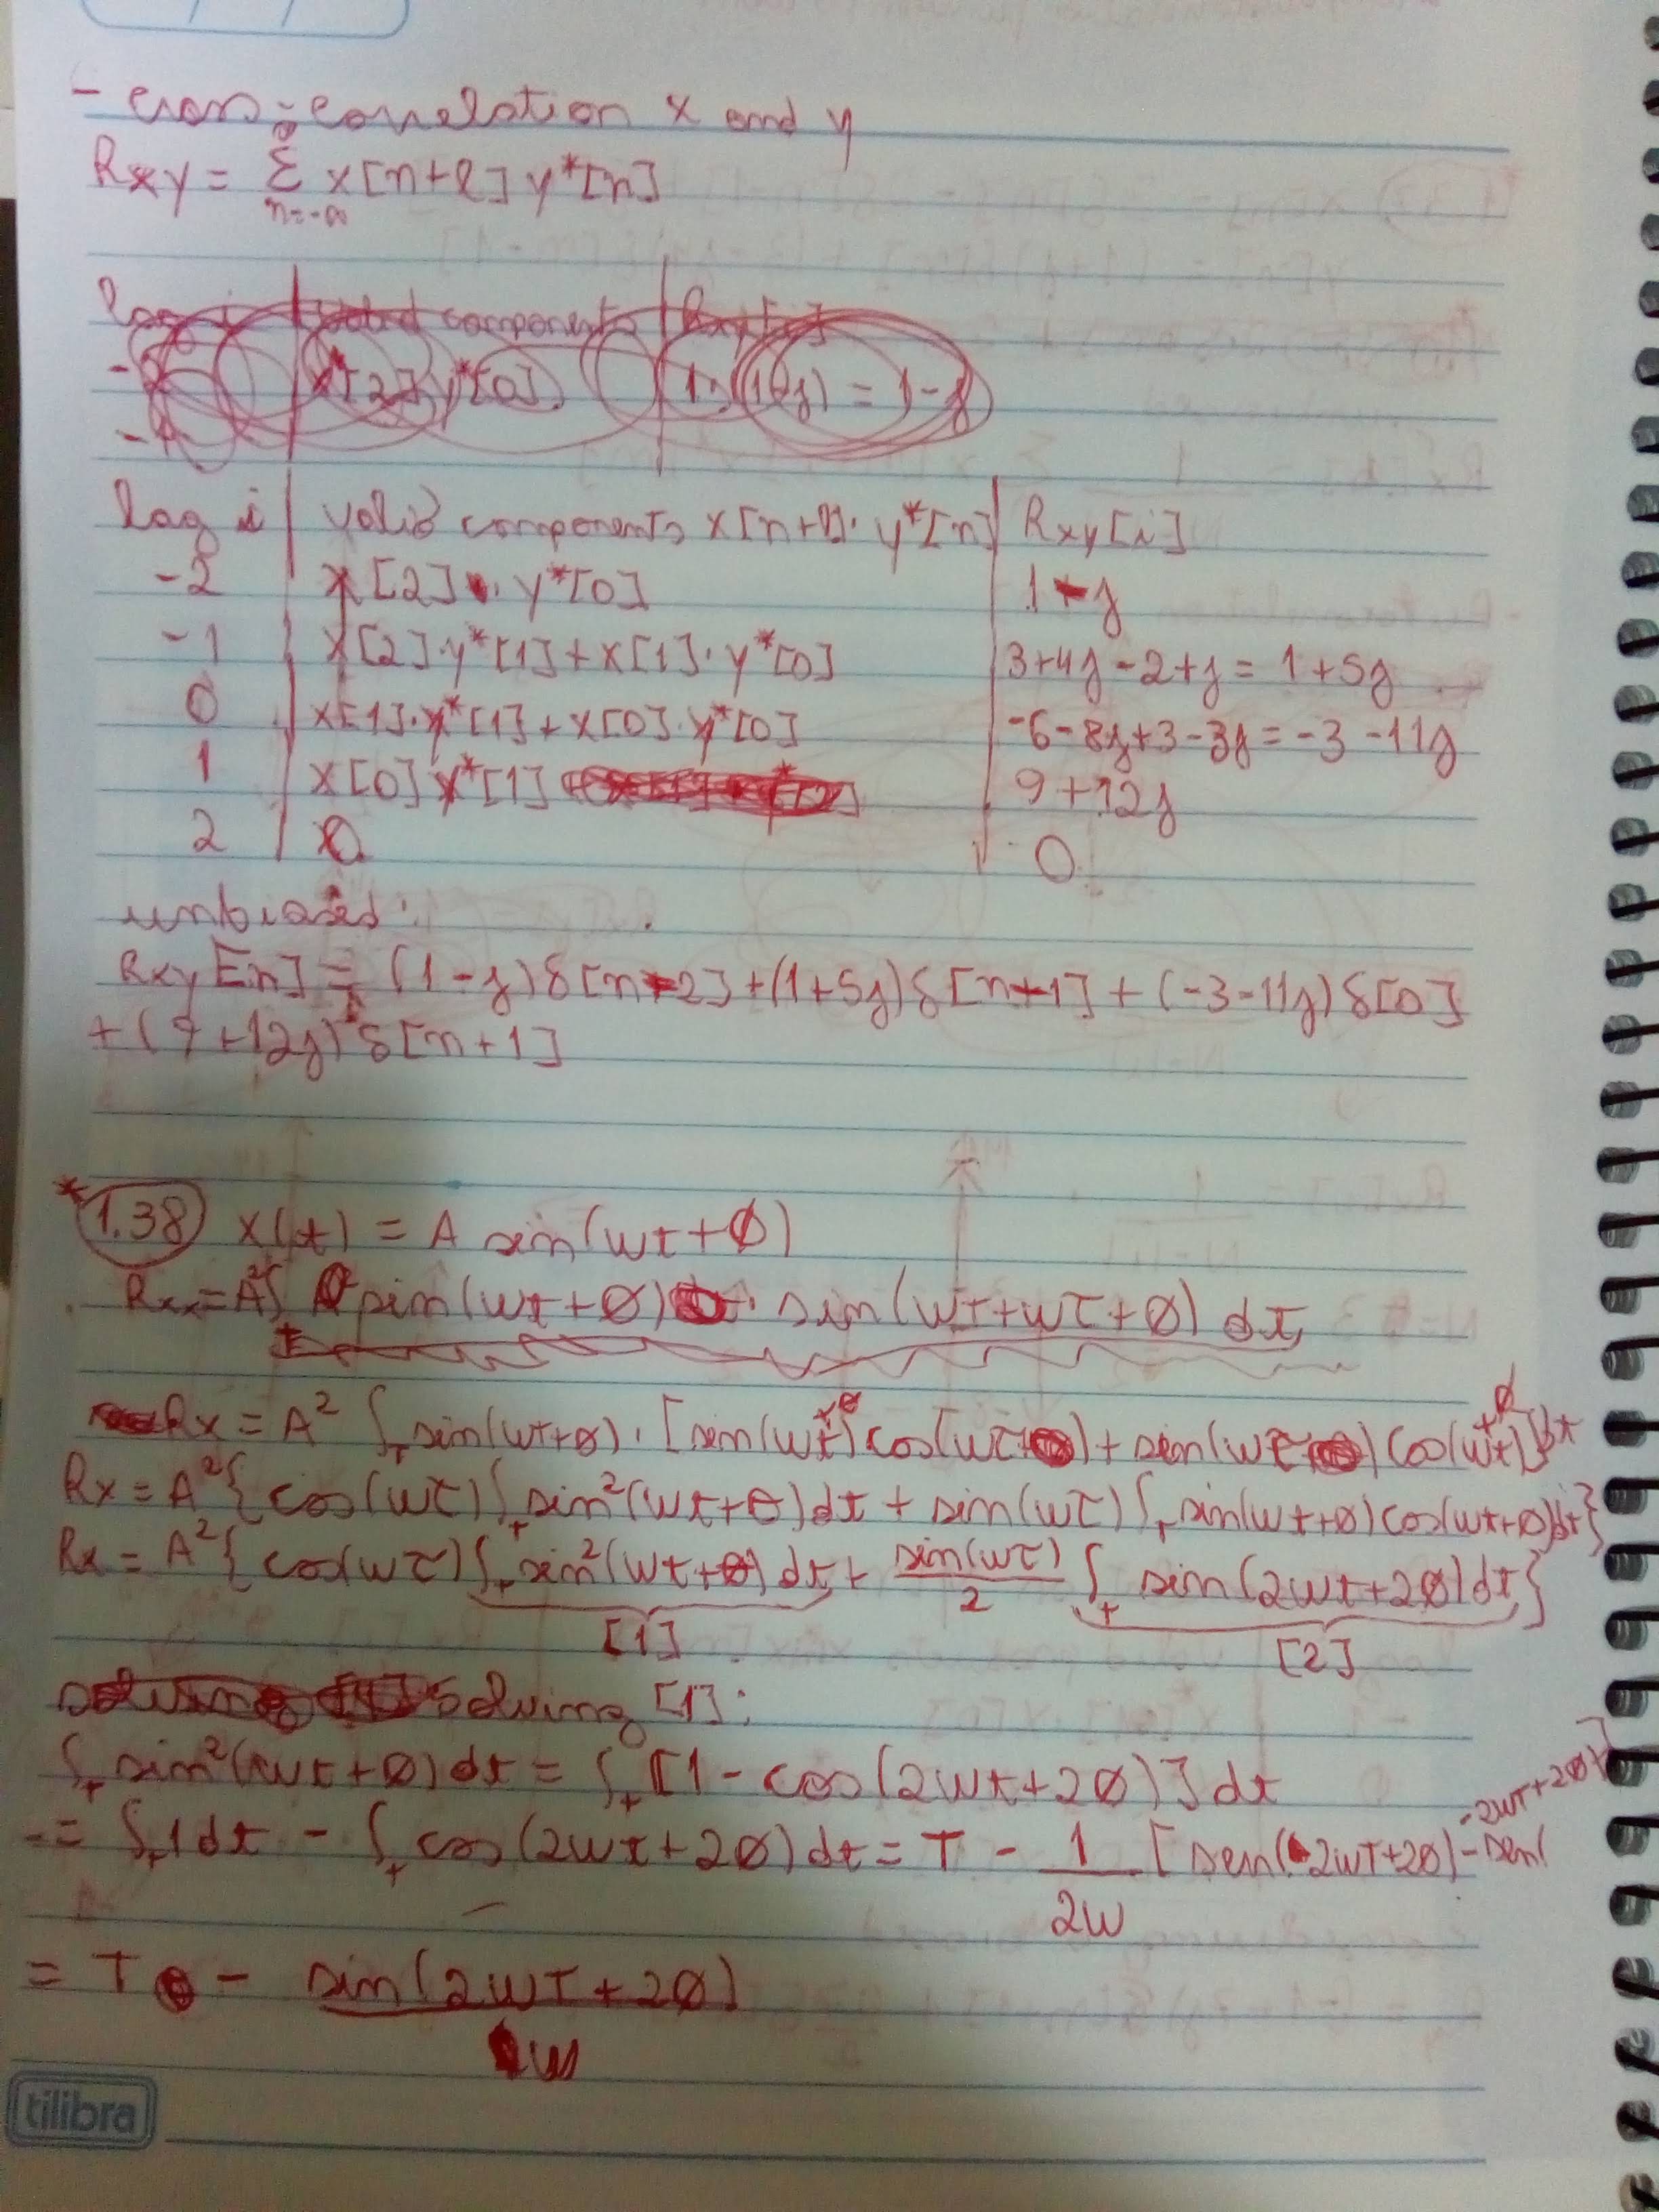 - cross-correlation x and y
Rxy = ∞ Σ n=-∞ x[n+l] y*[n]
lag i | valid components | Rxy[i]
-2 | x[2] y*[0] | 1·(1-j) = 1-j
-1
lag i | valid components x[n+l]· y*[n] | Rxy[i]
-2 | x[2] · y*[0] | 1-j
-1 | x[2]·y*[1]+x[1]·y*[0] | 3+4j-2+j= 1+5j
0 | x[1]·y*[1]+x[0]·y*[0] | -6-8j+3-3j=-3-11j
1 | x[0]y*[1] | 9+12j
2 | 0 | 0
unbiased:
Rxy[n] = (1-j)δ[n-2]+(1+5j)δ[n-1]+(-3-11j)δ[0]
+(9+12j)δ[n+1]
* 1.38 x(t) = A sin(wt+Ø)
Rxx=A²∫ sin(wt+Ø) · sin(wt+wτ+Ø) dt
Rx = A² ∫T sin(wt+Ø) · [sin(wt+Ø) cos(wτ)+sin(wτ) cos(wt+Ø)]dt
Rx = A²{cos(wτ)∫T sin²(wt+θ)dt + sin(wτ)∫T sin(wt+Ø)cos(wt+Ø)dt}
Rx = A²{cos(wτ)∫T sin²(wt+Ø) dt + sin(wτ)/2 ∫T sin(2wt+2Ø)dt}
[1] [2]
Solving [1]:
∫T sin²(wt+Ø)dt = ∫T [1-cos(2wt+2Ø)]dt
= ∫T 1dt - ∫T cos(2wt+2Ø)dt = T - 1/2w [sen(2wT+2Ø)-sen(-2wT+2Ø)]
= T - sin(2wT+2Ø)/w
tilibra